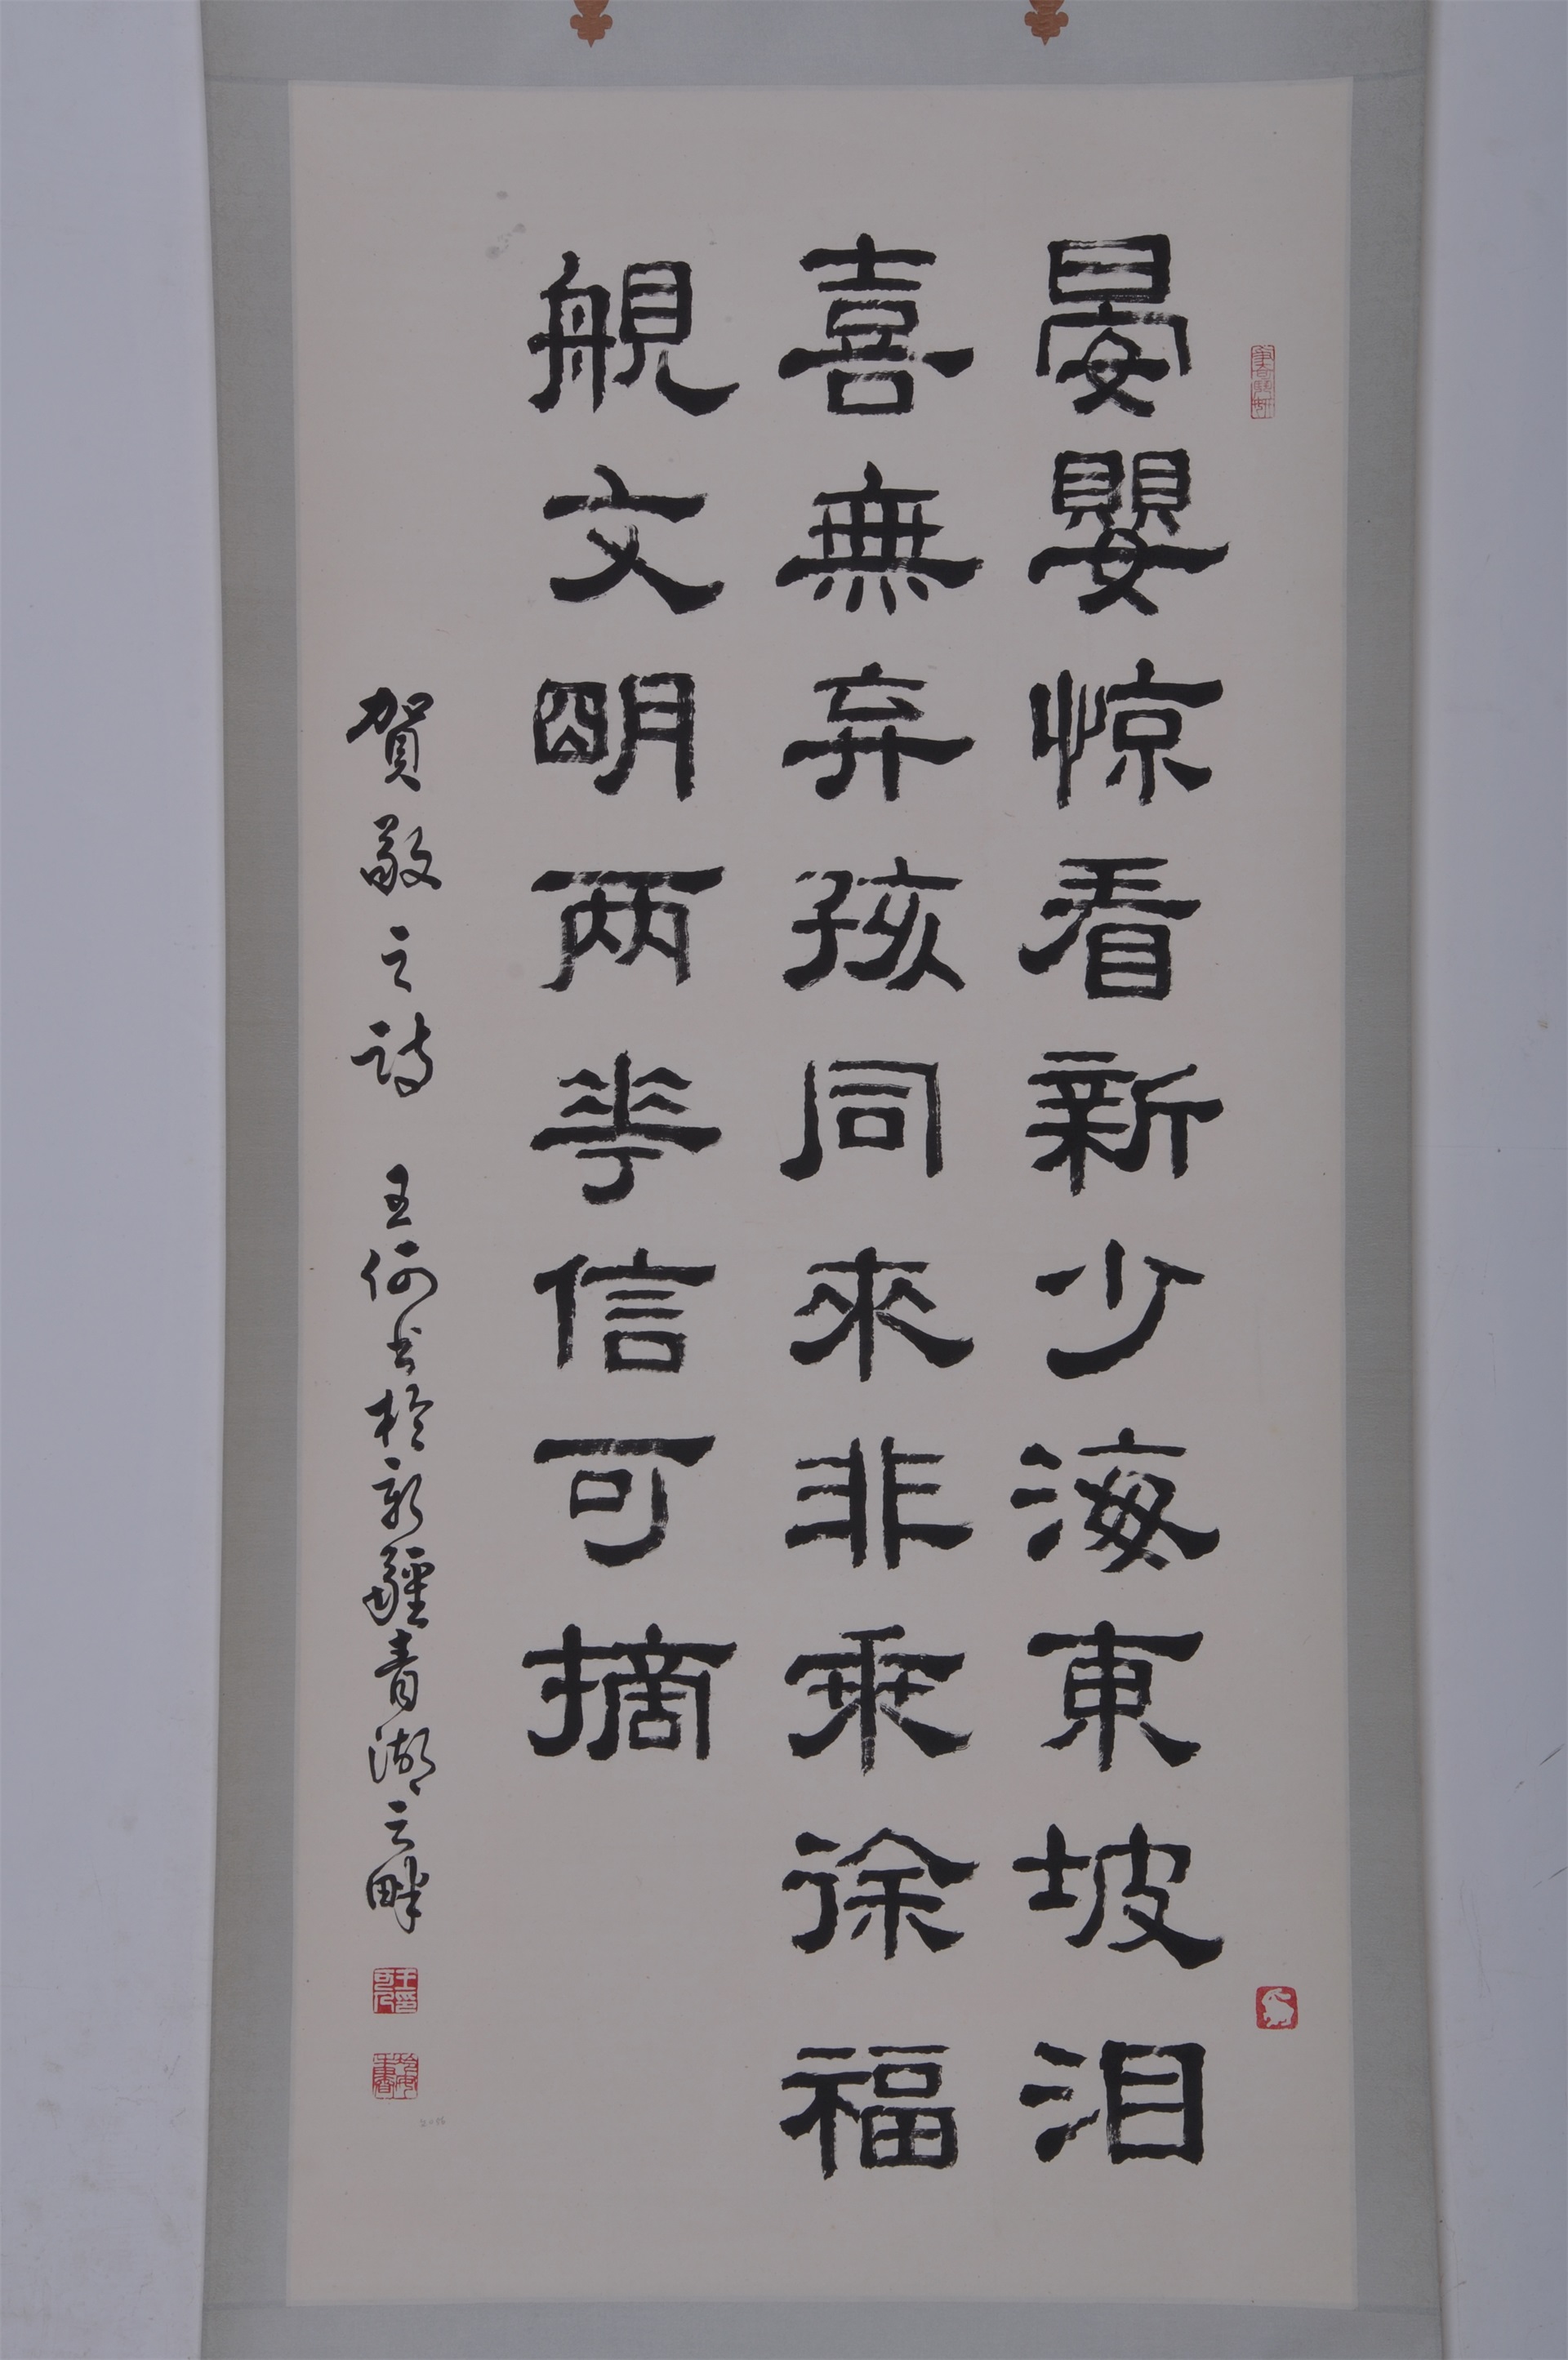 晏嬰惊看新少海東坡泪
喜無弃孩同來非乘徐福
舰文明两花信可摘
賀敬之詩 王何书於新疆青湖之畔